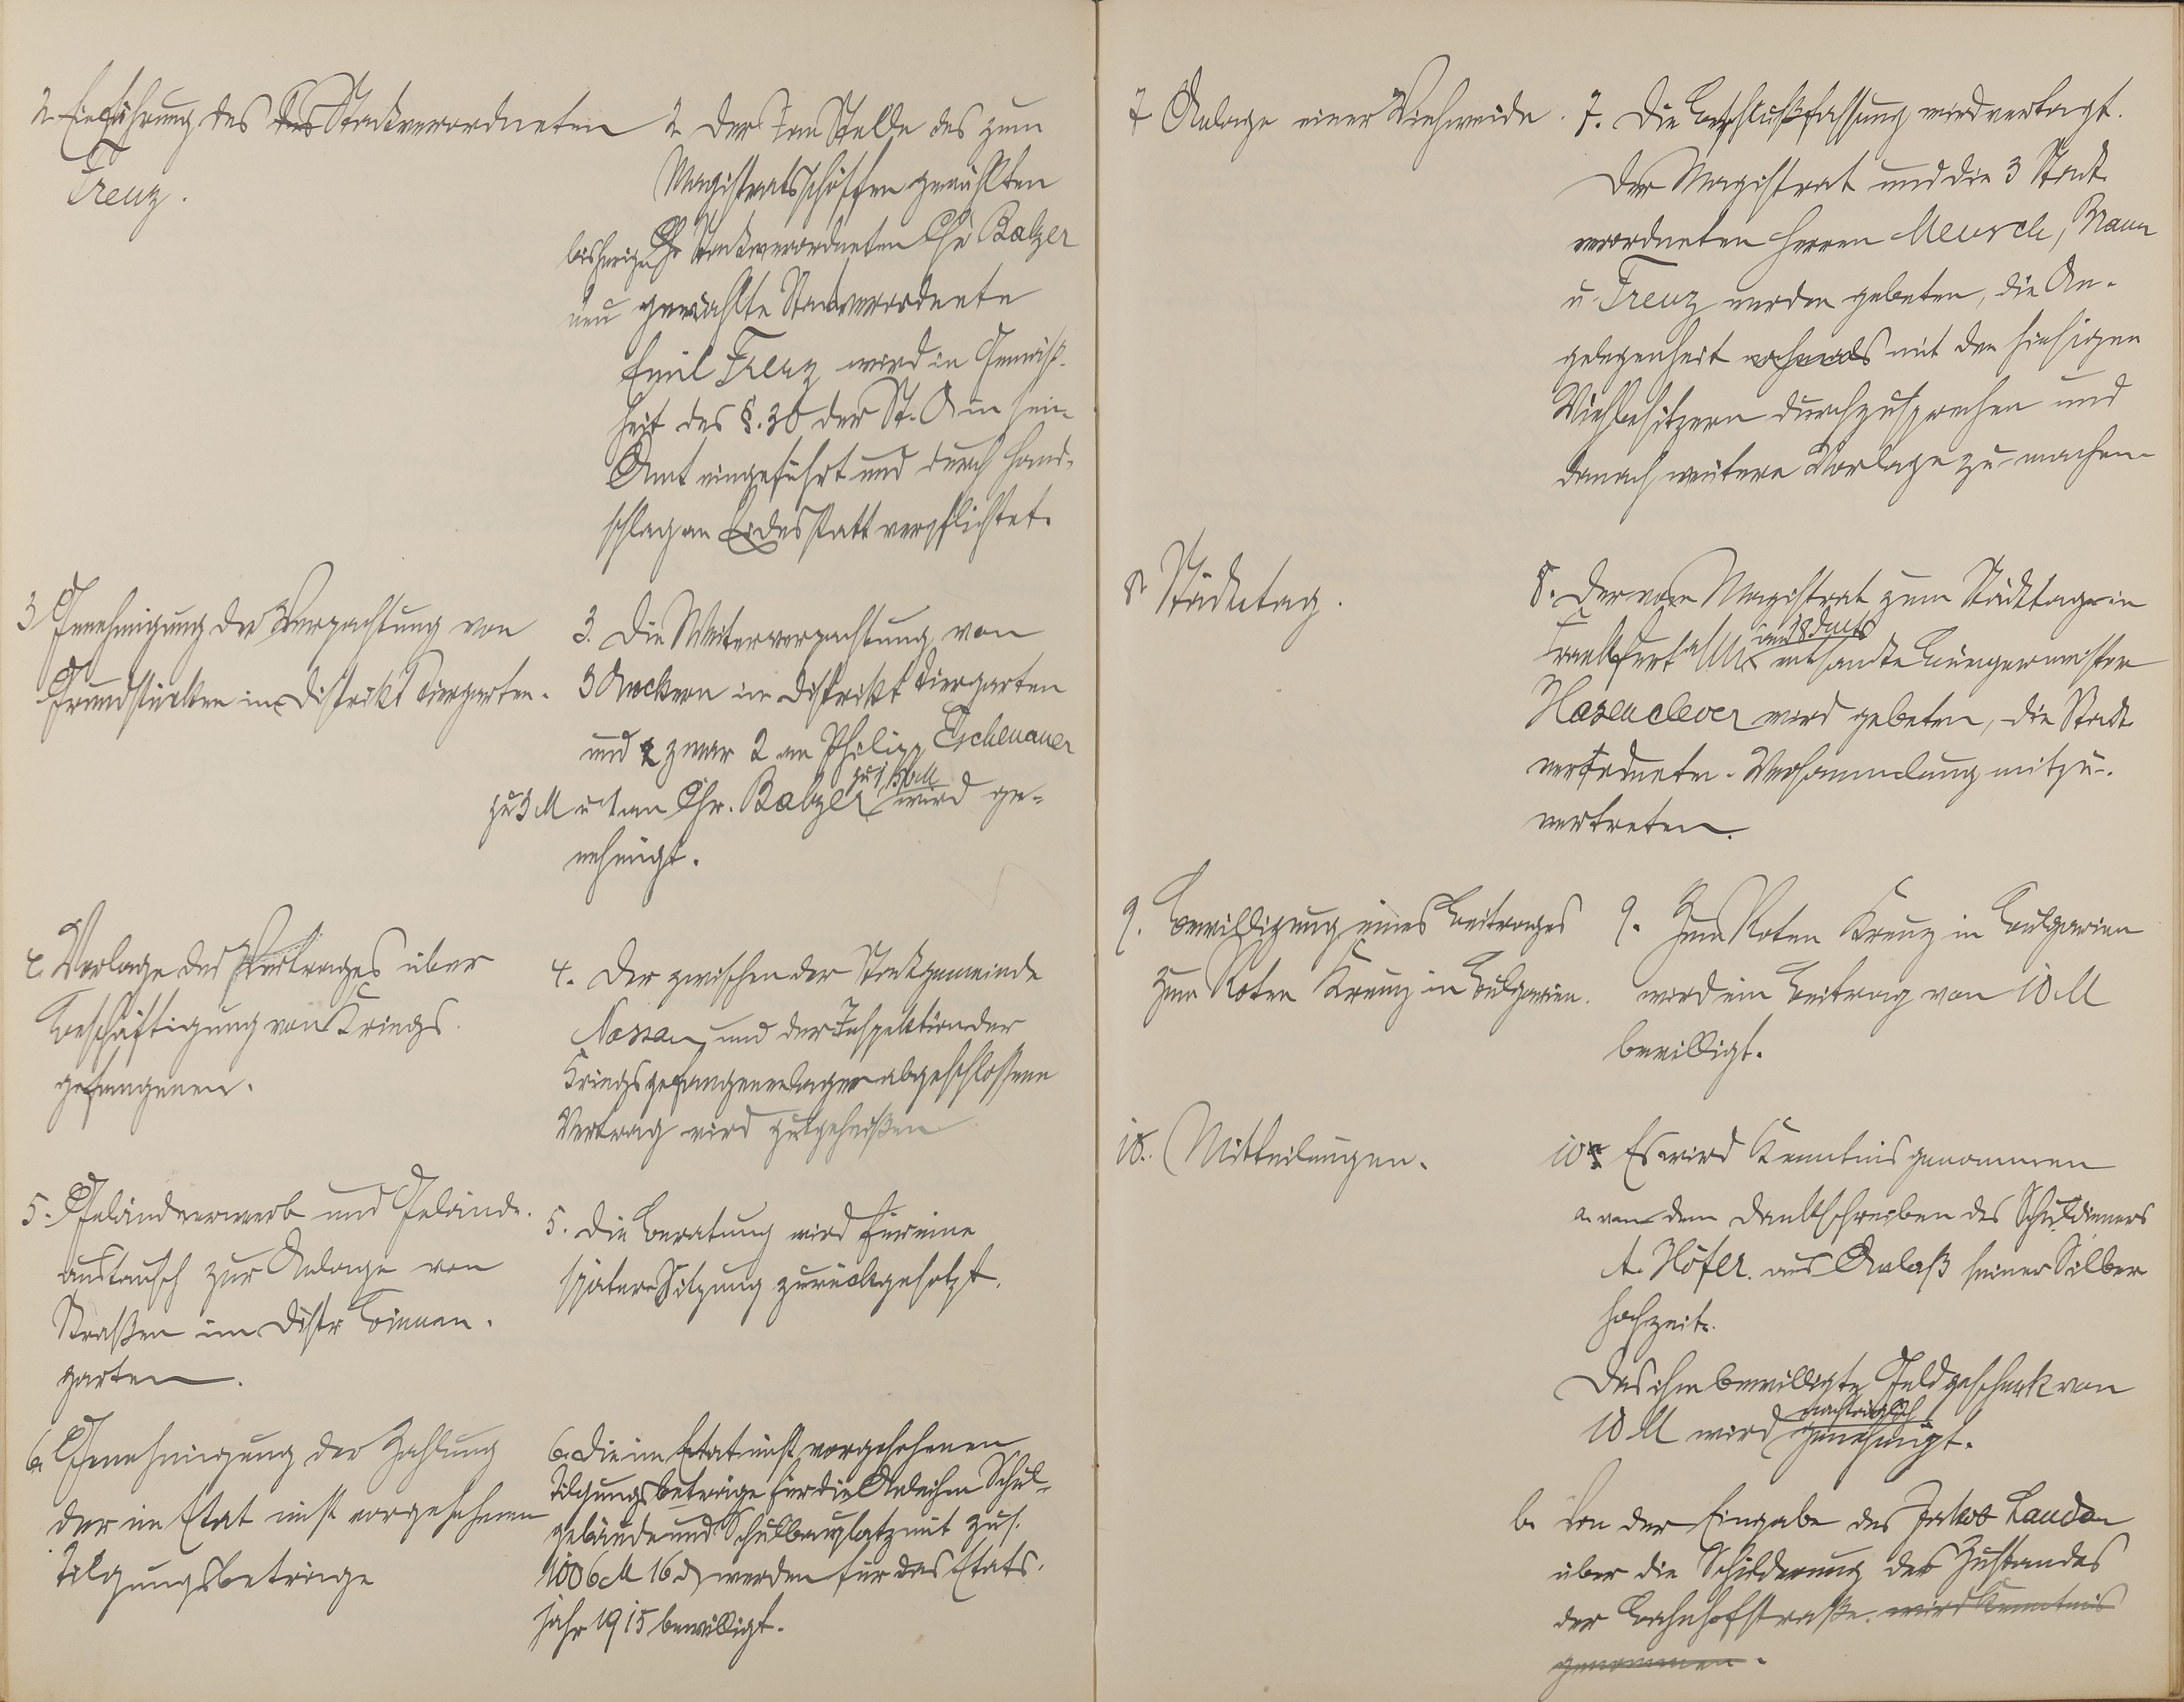 2. Einführung des Stadtverordneten
Trenz.
2. Der an Stelle des zum
Magistratsschöffen gewählten
bisherigen Stadtverordneten Chr. Balzer
neu gewählte Stadtverordnete
Emil Trenz wird in Gemäß-
heit des §. 30 der St. O. in sein
Amt eingeführt und durch Hand-
schlag an Eidesstatt verpflichtet.
3 Genehmigung der Verpachtung von
Grundstücken im Distrikt Tiergarten.
3. Die Weiterverpachtung von
3 Aeckern im Distrikt Tiergarten
und zwar 2 an Philipp Eschenauer
zu 3 M u 1 an Chr. Balzer zu 1,50 M wird ge-
nehmigt.
4. Vorlage des Vertrages über
Beschäftigung von Kriegs-
gefangenen.
4. Der zwischen der Stadtgemeinde
Nassau und der Inspektion der
Kriegsgefangenenlager abgeschlossene
Vertrag wird gutgeheißen
5. Geländeerwerb und Gelände-
austausch zur Anlage von
Straßen im Distr. Binnen-
garten.
5. Die Beratung wird für eine
spätere Sitzung zurückgesetzt.
6. Genehmigung der Zahlung
der im Etat nicht vorgesehenen
Tilgungsbeträge
6. Die im Etat nicht vorgesehenen
Tilgungsbeträge für die Anleihen Schul-
gebäude und Schulbauplatz mit zus.
1006 M 16 d werden für das Etats-
jahr 1915 bewilligt.
7 Anlage einer Viehweide.
7. Die Beschlußfassung wird vertagt.
Der Magistrat und die 3 Stadt-
verordneten Herren Meusch, Mann
u. Trenz werden gebeten, die An-
gelegenheit nochmals mit den hiesigen
Viehbesitzern durchzusprechen und
danach weitere Vorlage zu machen.
8. Städtetag.
8. Der vom Magistrat zum Städtetage in
Frankfurt a/M entsandte Bürgermeister
Hasenclever wird gebeten, die Stadt-
verordneten-Versammlung mitzu-
vertreten.
9. Bewilligung eines Beitrages
zum Roten Kreuz in Bulgarien.
9. Zum Roten Kreuz in Bulgarien
wird ein Beitrag von 10 M
bewilligt.
10. Mitteilungen.
10. Es wird Kenntnis genommen
a. von dem Dankschreiben des Schuldieners
A. Höfer aus Anlaß seiner Silber-
hochzeit.
Das ihm bewilligte Geldgeschenk von
10 M wird nachträglich genehmigt.
b. Von der Eingabe des Jakob Landan
über die Schilderung des Zustandes
der Bahnhofstraße. wird Kenntnis
genommen.